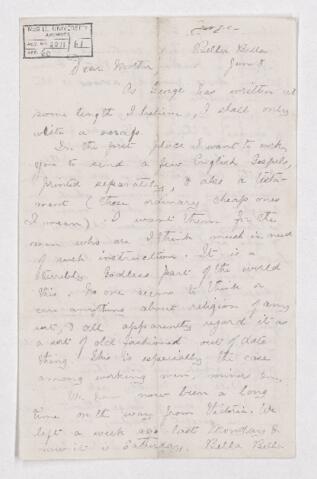 McGILL UNIVERSITY
ARCHIVES
ACC. NO. 2211
REF. 60
Bella Bella
June 8
Dear Mother,
As George has written at
some length I believe, I shall only
write a scrap.
In the first place I want to ask
you to send a few English Gospels,
printed separately, & also a Testa-
ment (those ordinary cheap ones
I mean). I want them for the
men who are I think much in need
of such instruction. It is a
terribly Godless part of the world
this. No one seems to think or
care anything about religion of any
sort, & all apparently regard it as
a sort of old fashioned out of date
thing. This is especially the case
among working men, miners &c.
We have now been a long
time on the way from Victoria. We
left a week ago last Monday &
now it is Saturday. Bella Bella